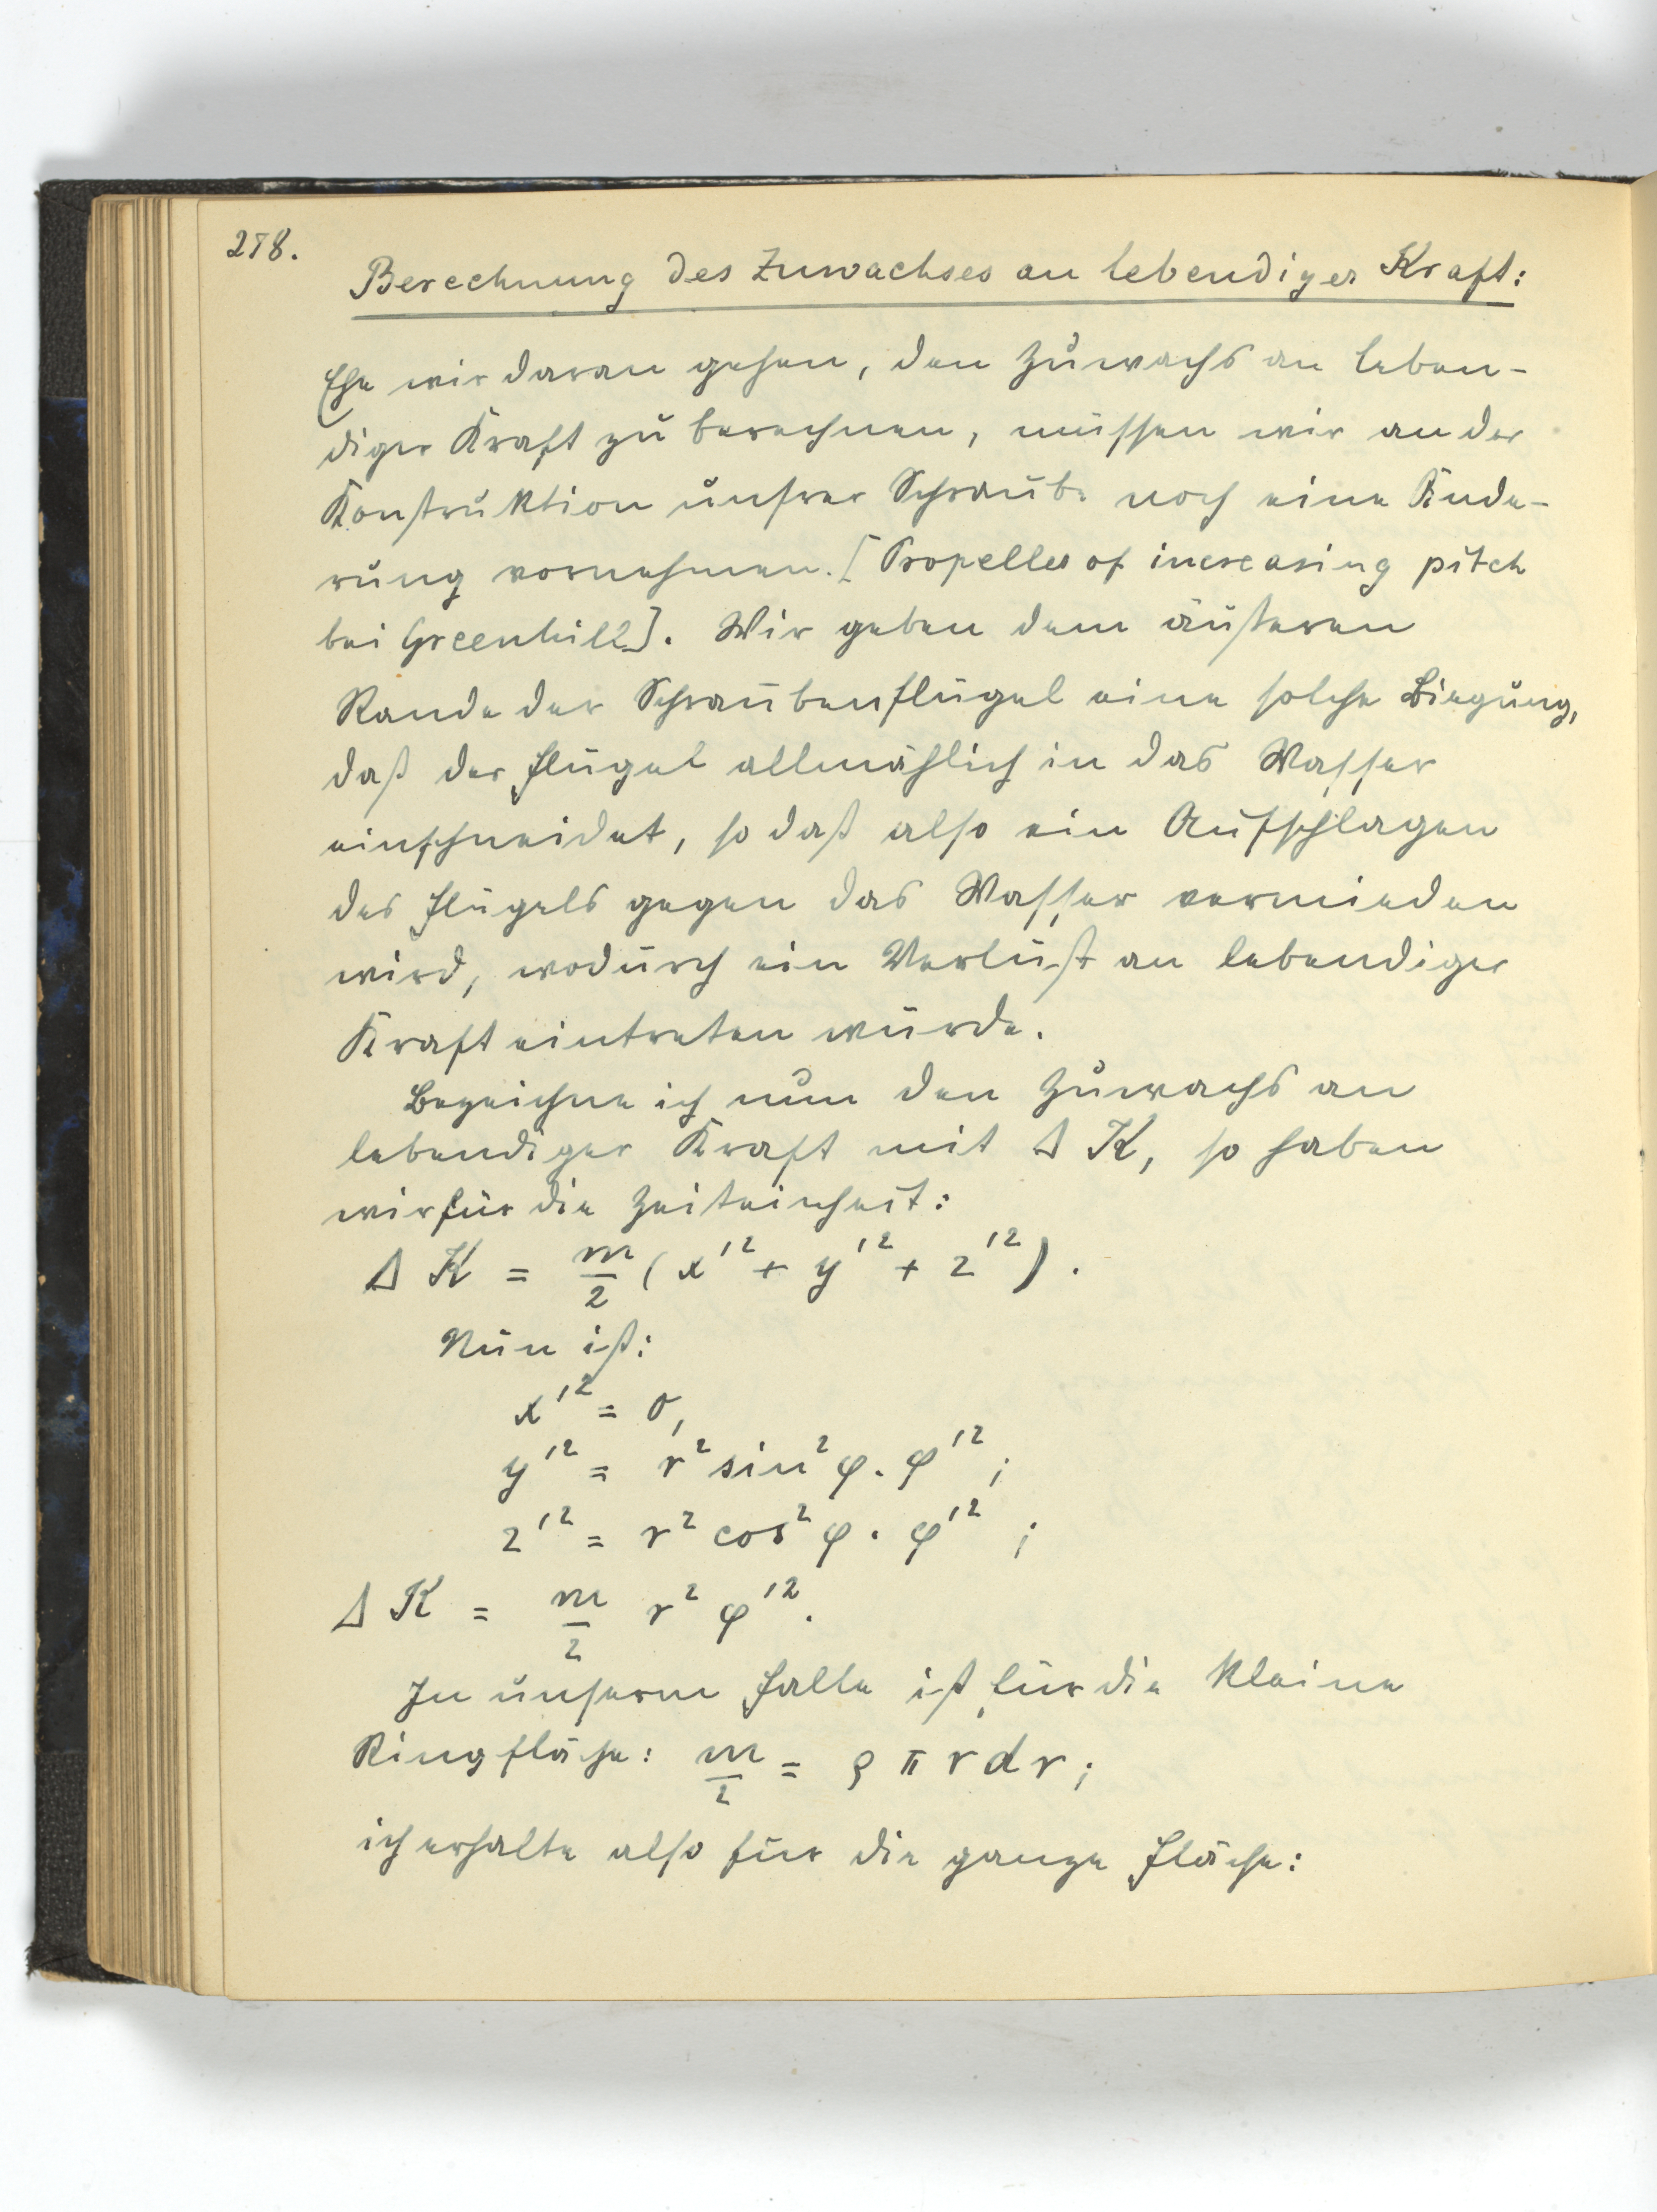 278.
Berechnung des Zuwachses an lebendiger Kraft:
Ehe wir daran gehen, den Zuwachs an leben-
diger Kraft zu berechnen, müssen wir an der
Konstruktion unsrer Schraube noch eine Ände-
rung vornehmen. [Propeller of increasing pitch
bei Greenhill]. Wir geben dem äußeren
Rande der Schraubenflügel eine solche Biegung,
daß der Flügel allmählich in das Wasser
einschneidet, so daß also ein Aufschlagen
des Flügels gegen das Wasser vermieden
wird, wodurch ein Verlust an lebendiger
Kraft eintreten würde.
Bezeichne ich nun den Zuwachs an
lebendiger Kraft mit Δ K, so haben
wir für die Zeiteinheit:
Δ K = m/2 (x'² + y'² + z'²).
Nun ist:
x'² = 0,
y'² = r² sin² φ . φ'² ;
z'² = r² cos² φ . φ'² ;
Δ K = m/2 r² φ'².
In unserm Falle ist für die kleine
Ringfläche: m/2 = ρ π r d r ;
ich erhalte also für die ganze Fläche: